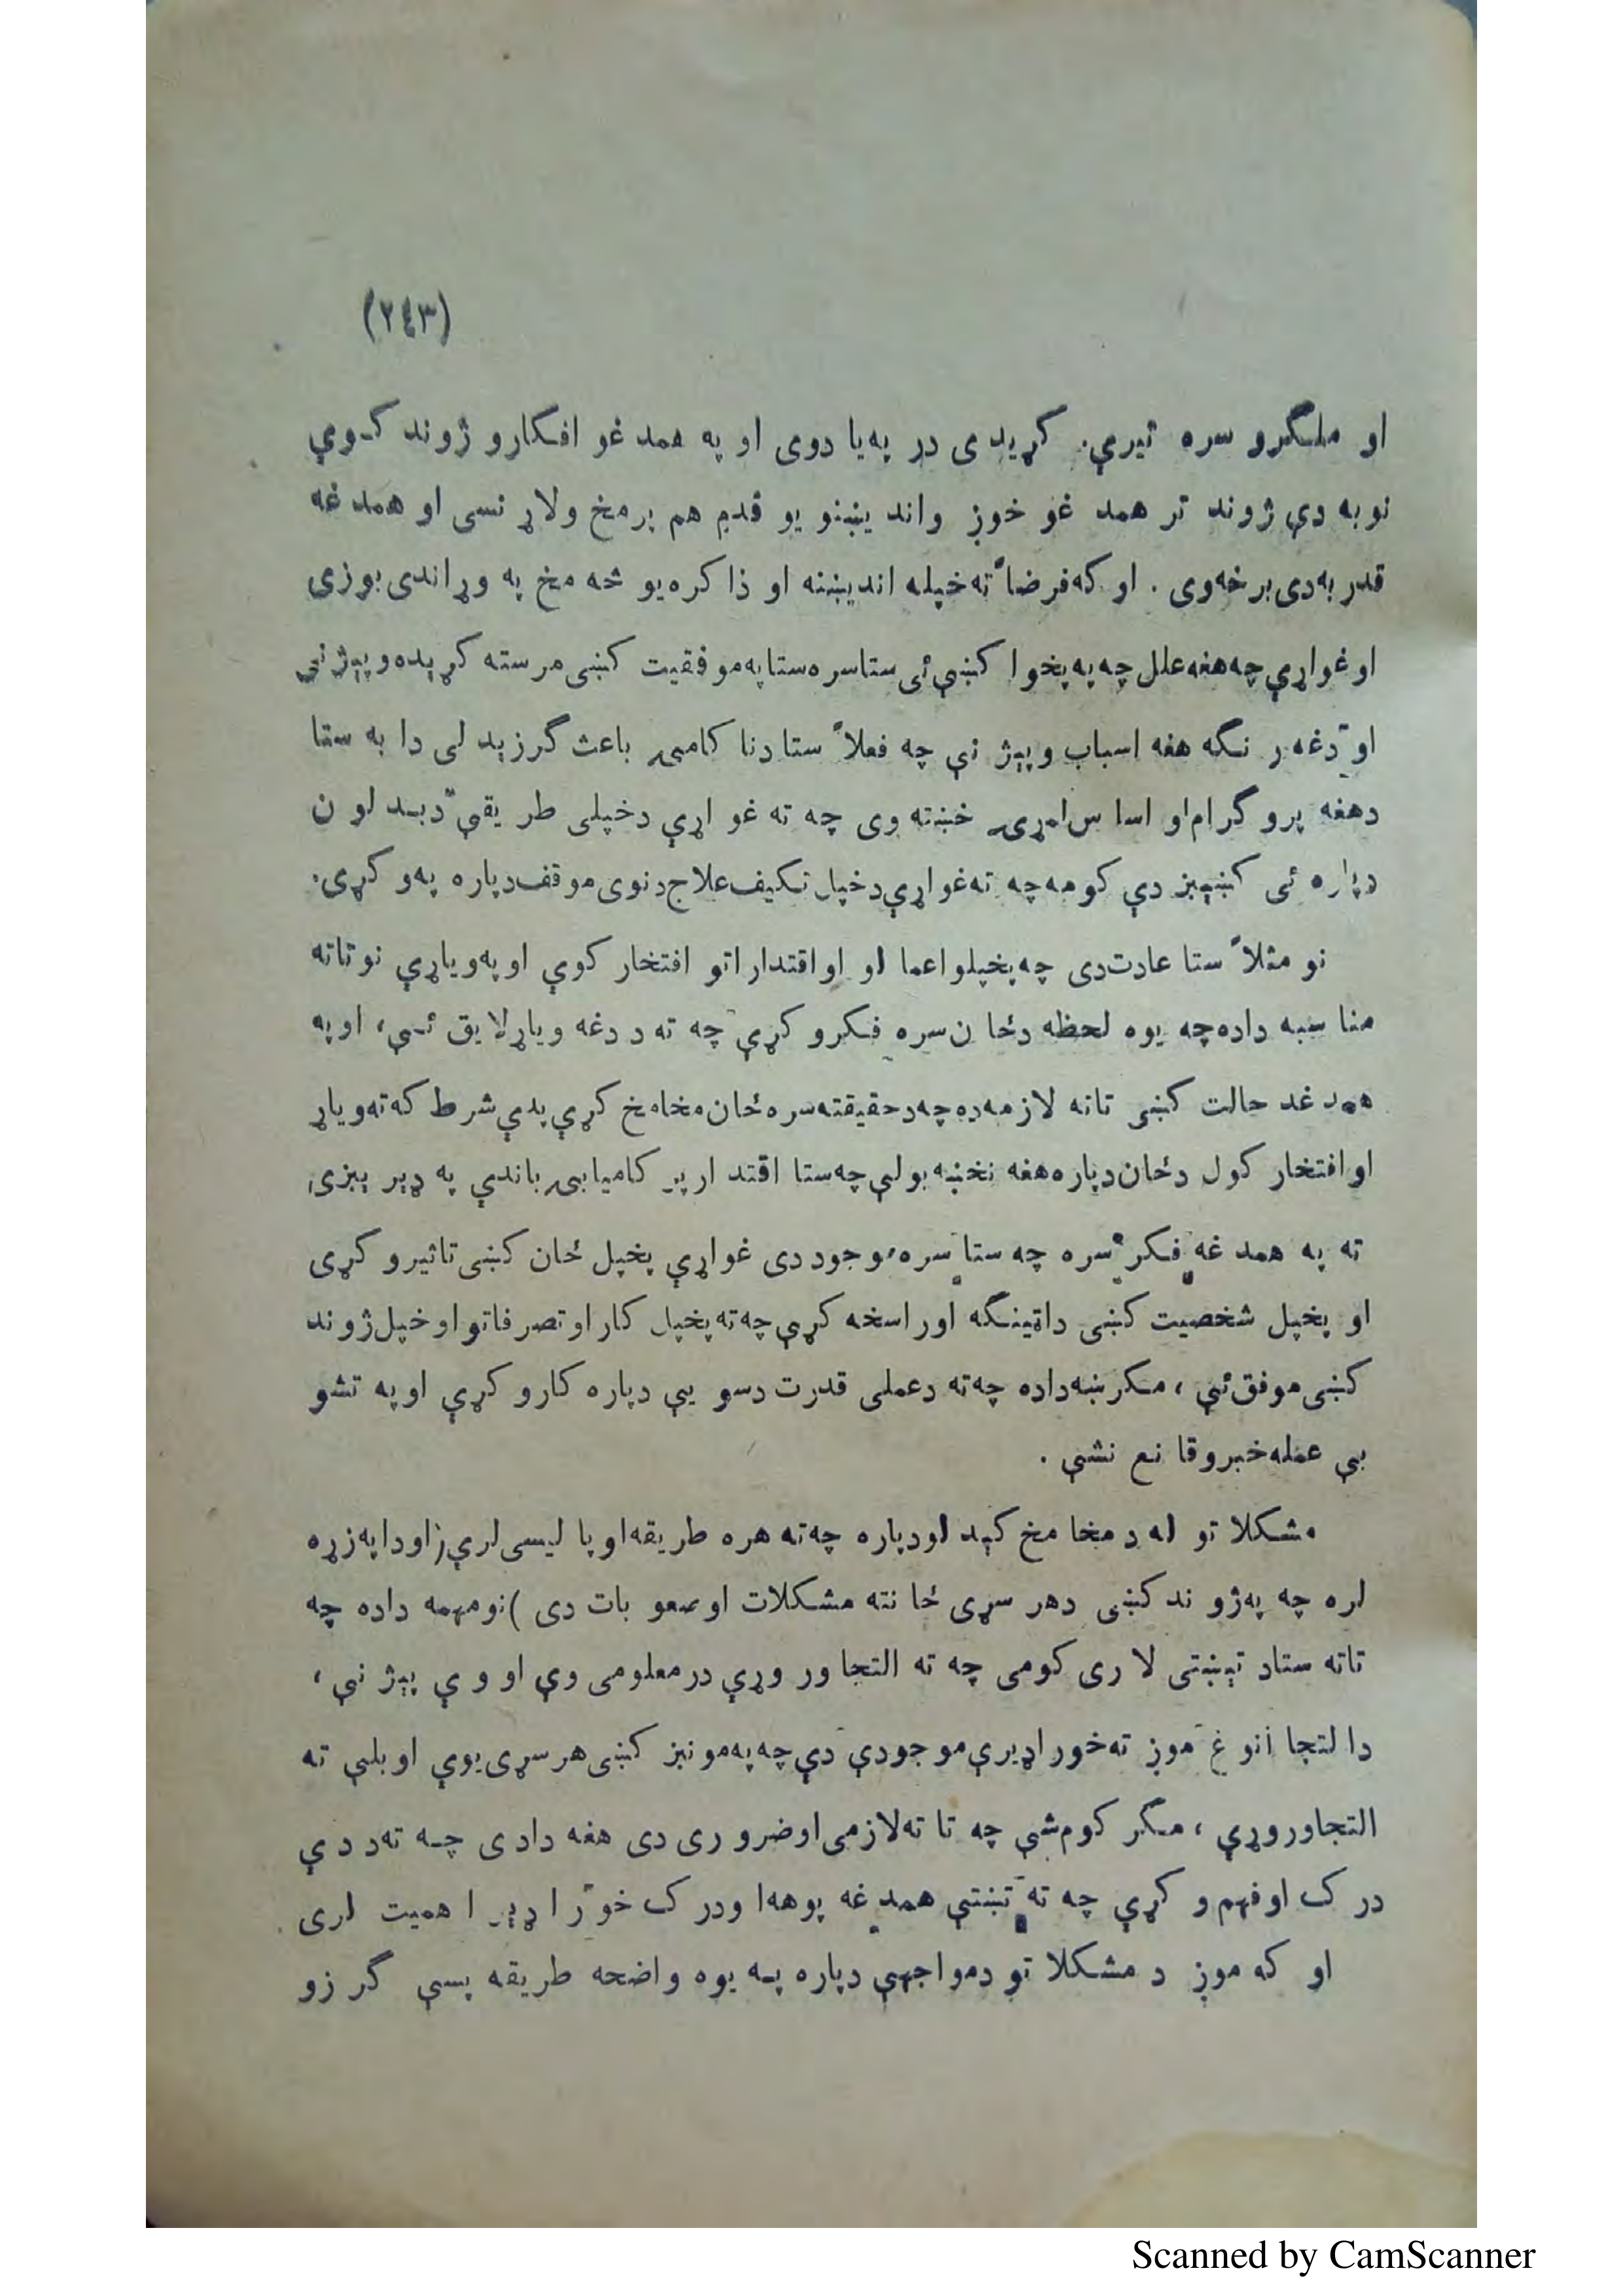 (٢٤٣)
او ملگرو سره تیرې. کړیدی در په یا دوی او په همد غو افکارو ژوند کوې
نو به دې ژوند تر همد غو خوږ واند یښنو یو قدم هم پر مخ ولاړ نسی او همد غه
قدر به دی برخه وی . او که فرضاً ته خپله اندیښنه او ذا کره یو څه مخ په وړاندی بوزی
او غواړې چه هغه علل چه په پخوا کښې ئی ستا سره ستا په موفقیت کښی مرسته کړیده و پېژنې
او دغه ر نگه هغه اسباب و پېژ نې چه فعلاً ستا دنا کامیۍ باعث گرزېد لی دا به ستا
دهغه پرو گرام او اسا س لمړۍ خښته وی چه ته غو اړې دخپلی طر یقې د بد لو ن
دپاره ئی کښېږ دې کومه چه ته غواړې دخپل تکیف علاج دنوی موقف دپاره په و کړی.
نو مثلاً ستا عادت دی چه پخپلو اعما لو او اقتدار اتو افتخار کوې او په ویاړې نو تاته
منا سبه داده چه یوه لحظه دځا ن سره فکرو کړې چه ته د دغه ویاړ لا یق ئې، او په
همد غه حالت کښی تاته لازمه ده چه د حقیقته سره ځان مخامخ کړې پدې شرط که ته ویاړ
او افتخار کول دځان دپاره هغه نخښه بولې چه ستا اقتد ار پر کامیابۍ باندې په ډیر یږی
ته په همد غه فکر سره چه ستا سره موجود دی غواړې پخپل ځان کښی تاثیرو کړی
او پخپل شخصیت کښی دا ټینگه او راسخه کړې چه ته پخپل کار او تصرفاتو او خپل ژوند
کښی موفق ئې ، مگر ښه داده چه ته دعملی قدرت دسو یې دپاره کارو کړې او په تشو
بې عمله خبرو قا نع نشې .
مشکلا تو له د مخا مخ کېد لو دپاره چه ته هره طریقه او پا لیسی لرې (او دا په زړه
لره چه په ژو ند کښی دهر سړی ځا نته مشکلات او صعو بات دی ) نو مهمه داده چه
تاته ستاد تېښتی لا ری کومی چه ته التجا ور وړې در معلومی وې او و ې پېژ نې ،
دا لتجا انو غ موږ ته خورا ډیرې موجودې دې چه په مو نږ کښی هر سړی یوې او بلې ته
التجاوروړې ، مگر کوم شې چه تا ته لازمی او ضرو ری دی هغه دادی چه ته د دې
درک او فهم و کړې چه ته تښتې همد غه پوهه او درک خو را ډیر ا همیت لری .
او که موږ د مشکلا تو دمواجهې دپاره په یوه واضحه طریقه پسې گر زو
Scanned by CamScanner